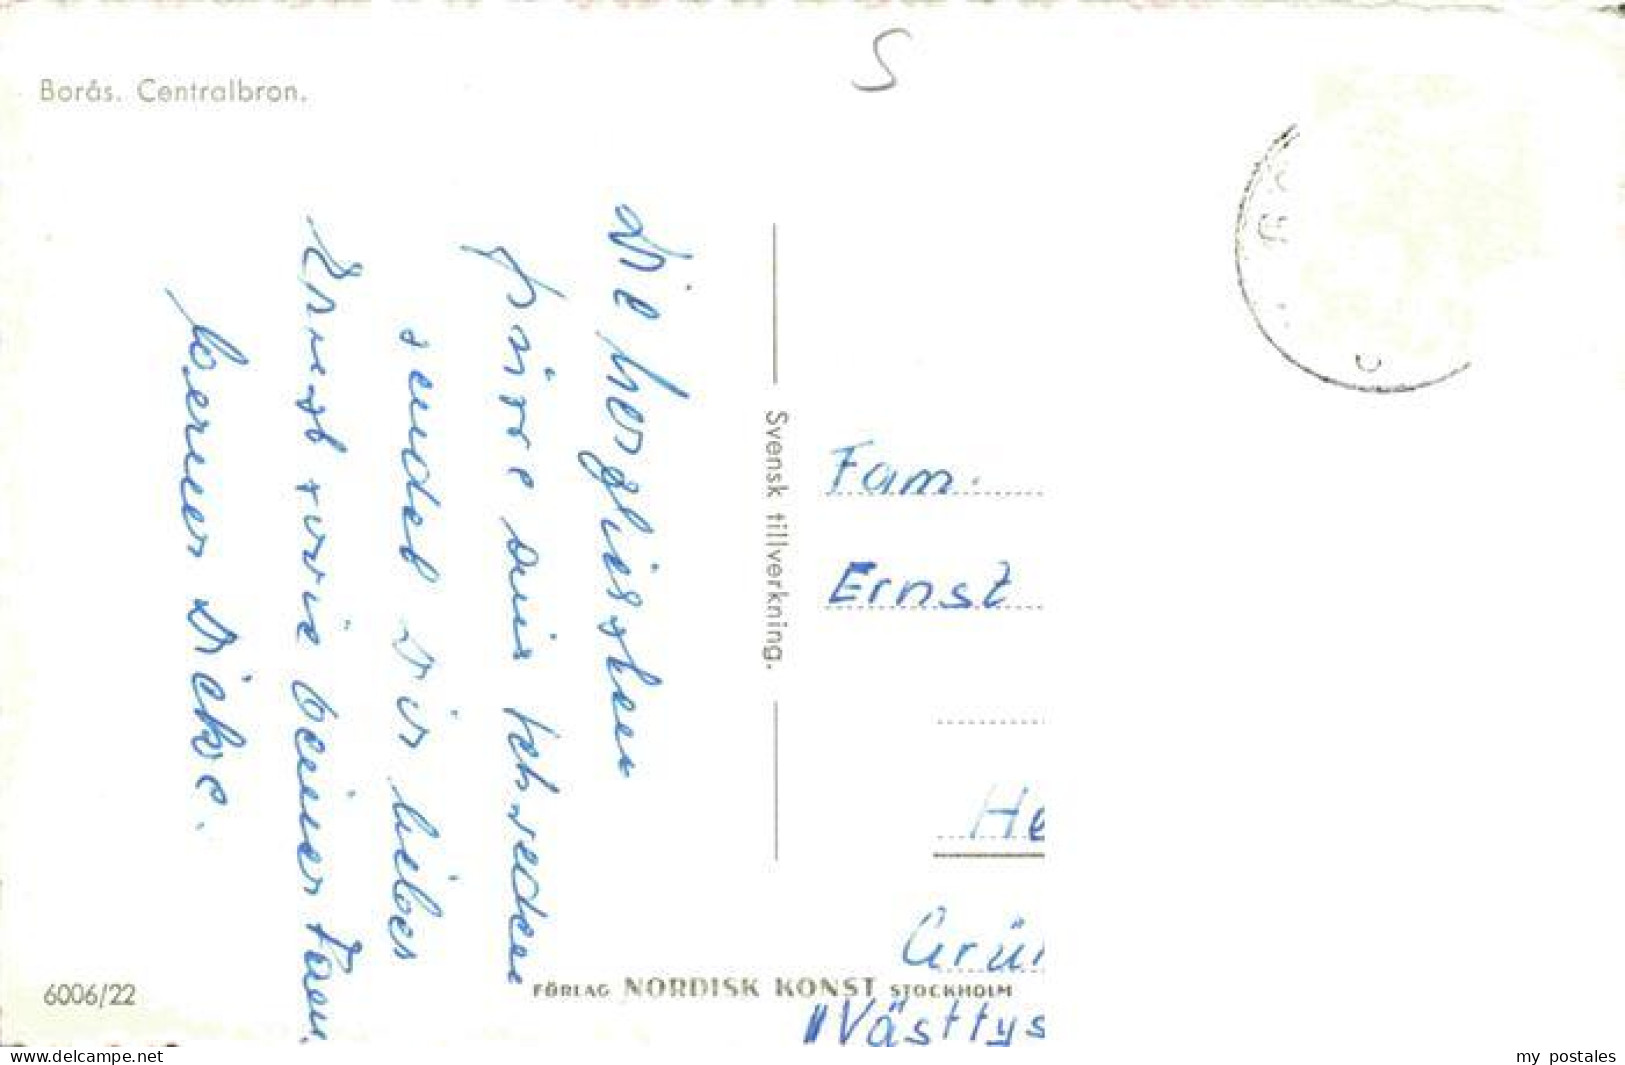 Borås. Centralbron.
S
Die herzlichsten
Grüsse aus Schweden
sendet Dir lieber
Ernst sowie deiner Frau
Werner Dicke.
Svensk tillverkning.
Fam.
Ernst
He
Grün
Västtys
6006/22
FÖRLAG NORDISK KONST STOCKHOLM
www.delcampe.net
my_postales